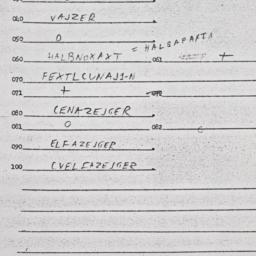 040 VAJZER
050 0
060 HALBNOXAXT = HALBAPAXTA 061 +
070 FEXTLCUNAJ1-N
071 + 072
080 CENAZEJGER
081 0 082 C
090 ELFAZEJGER
100 CVELFAZEJGER